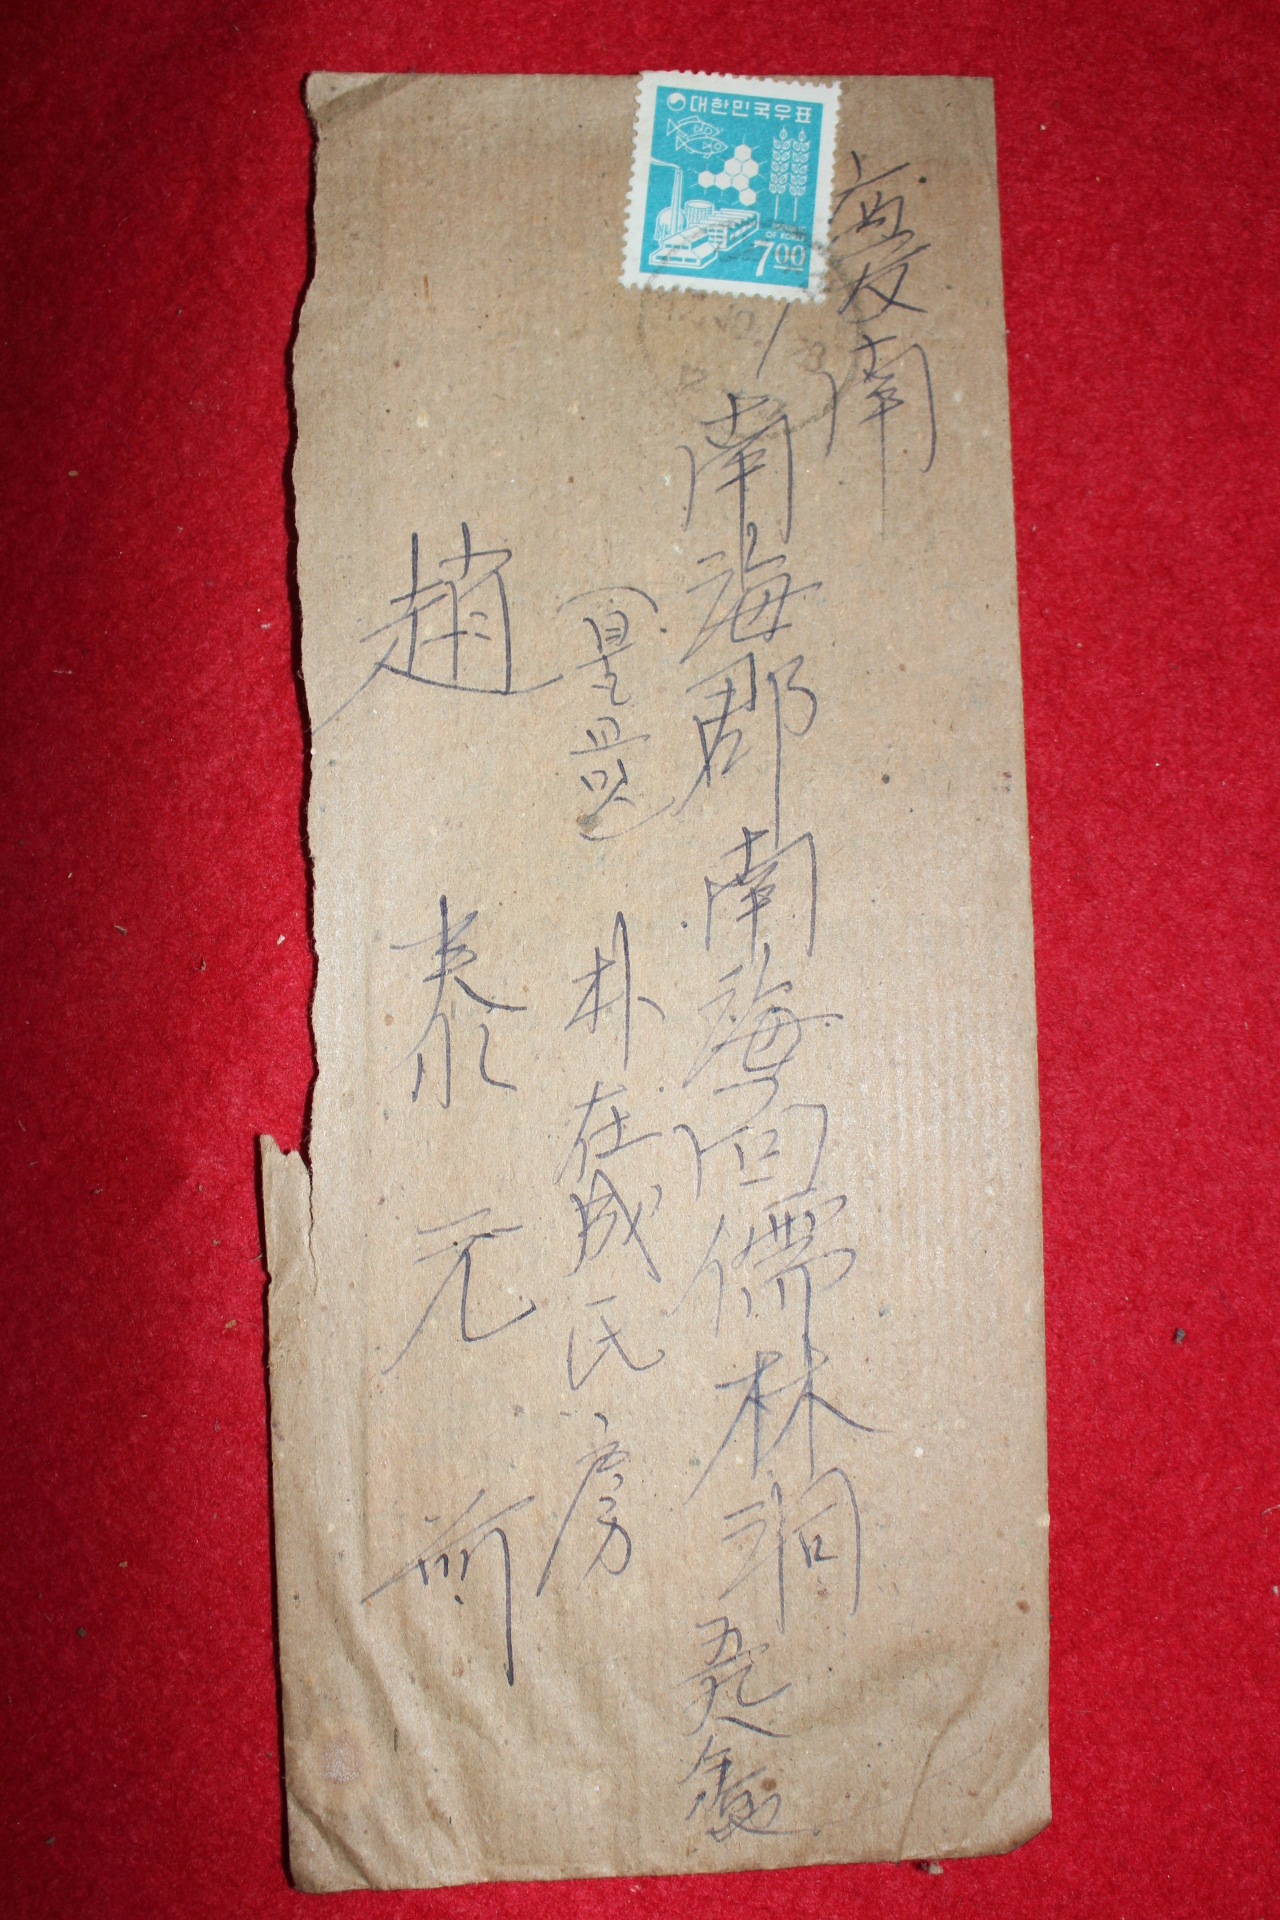 대한민국우표
REPUBLIC
OF KOREA
700
慶南
南海郡南海面儒林洞
朴在成氏房
趙泰元前